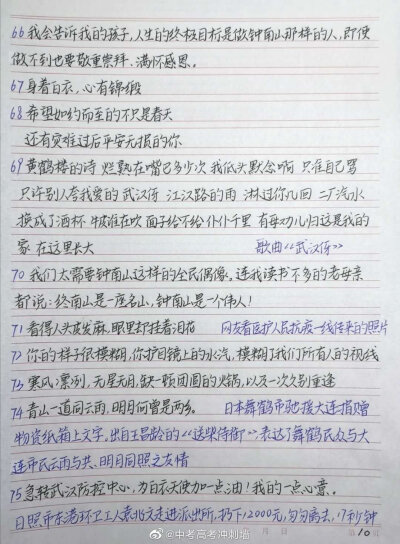 66 我会告诉我的孩子,人生的终极目标是做钟南山那样的人,即便
做不到也要敬重崇拜、满怀感恩。
67 身着白衣,心有锦缎
68 希望如约而至的不只是春天
还有灾难过后平安无损的你
69 黄鹤楼的诗 烂熟在嘴巴多少次 我低头默念啊 只准自己骂
只许别人夸我爱的 武汉伢 江汉路的雨 淋过你几回 二厂汽水
换成了酒杯 牛皮谁在吹 面子给不给 仆仆千里 有母功儿归这是我的
家 在这里长大 歌曲《武汉伢》
70 我们太需要钟南山这样的全民偶像。连我读书不多的老母亲
都说:终南山是一座名山,钟南山是一个伟人!
71 看得人头皮发麻,眼里打转着泪花 网友看医护人员抗疫一线传来的照片
72 你的样子很模糊,你护目镜上的水汽,模糊了我们所有人的视线
73 寒风凛冽,无星无月,缺一顿团圆的火锅,以及一次久别重逢
74 青山一道同云雨,明月何曾是两乡。 日本舞鹤市驰援大连捐赠
物资纸箱上文字,出自王昌龄的《送柴侍御》表达了舞鹤民众与大
连市民云雨与共、明月同照之友情
75 急转武汉防控中心,为白衣天使加一点油!我的一点心意。
日照市东港环卫工人袁兆文走进派出所,扔下12000元,匆匆离去,17秒钟
@中考高考冲刺墙
10